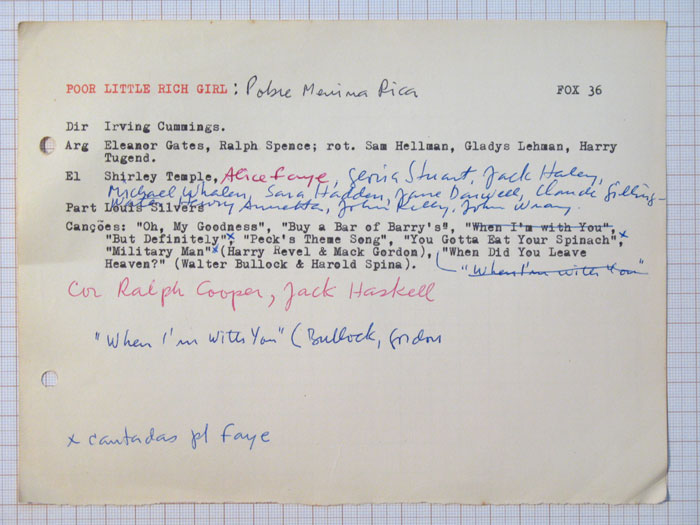 POOR LITTLE RICH GIRL : Pobre Menina Rica FOX 36
Dir Irving Cummings.
Arg Eleanor Gates, Ralph Spence; rot. Sam Hellman, Gladys Lehman, Harry
Tugend.
El Shirley Temple, Alice Faye, Gloria Stuart, Jack Haley,
Michael Whalen, Sara Hadden, Jane Darwell, Claude Gilling-
water, Henry Armetta, John Kelly, John Wray.
Part Louis Silvers
Canções: "Oh, My Goodness", "Buy a Bar of Barry's", "When I'm with You",
"But Definitely",x "Peck's Theme Song", "You Gotta Eat Your Spinach",x
"Military Man"x (Harry Revel & Mack Gordon), "When Did You Leave
Heaven?" (Walter Bullock & Harold Spina). "When I'm with You"
Cor Ralph Cooper, Jack Haskell
"When I'm With You" (Bullock, Gordon
x cantadas pl Faye